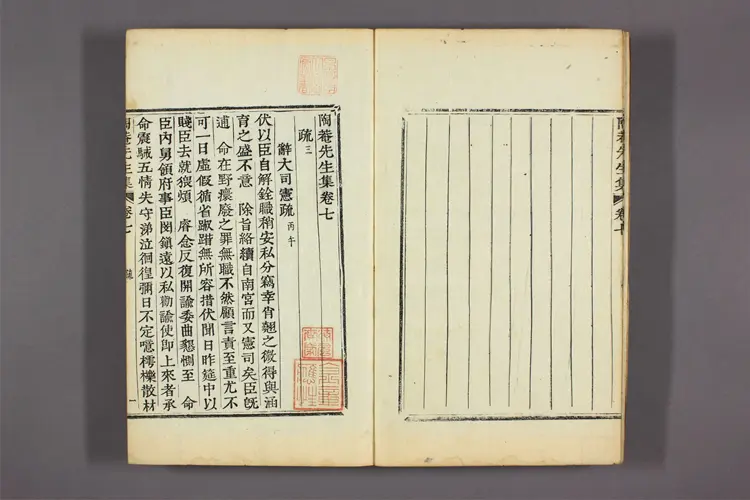 陶菴先生集卷七
陶菴先生集卷七
疏三
辭大司憲疏丙午
伏以臣自解銓職稍安私分竊幸肖翹之微得與涵
育之盛不意 除旨絡續自南宮而又憲司矣臣旣
逋 命在野瘝廢之罪無職不然顧言責至重尤不
可一日虛假循省踧踖無所容措伏聞日昨筵中以
賤臣去就猥煩 睿念反復開諭委曲懇惻至 命
臣內舅領府事臣閔鎭遠以私勸諭使卽上來者承
命震駴五情失守涕泣徊徨彌日不定噫樗櫟散材
陶菴先生集 卷七 疏 一